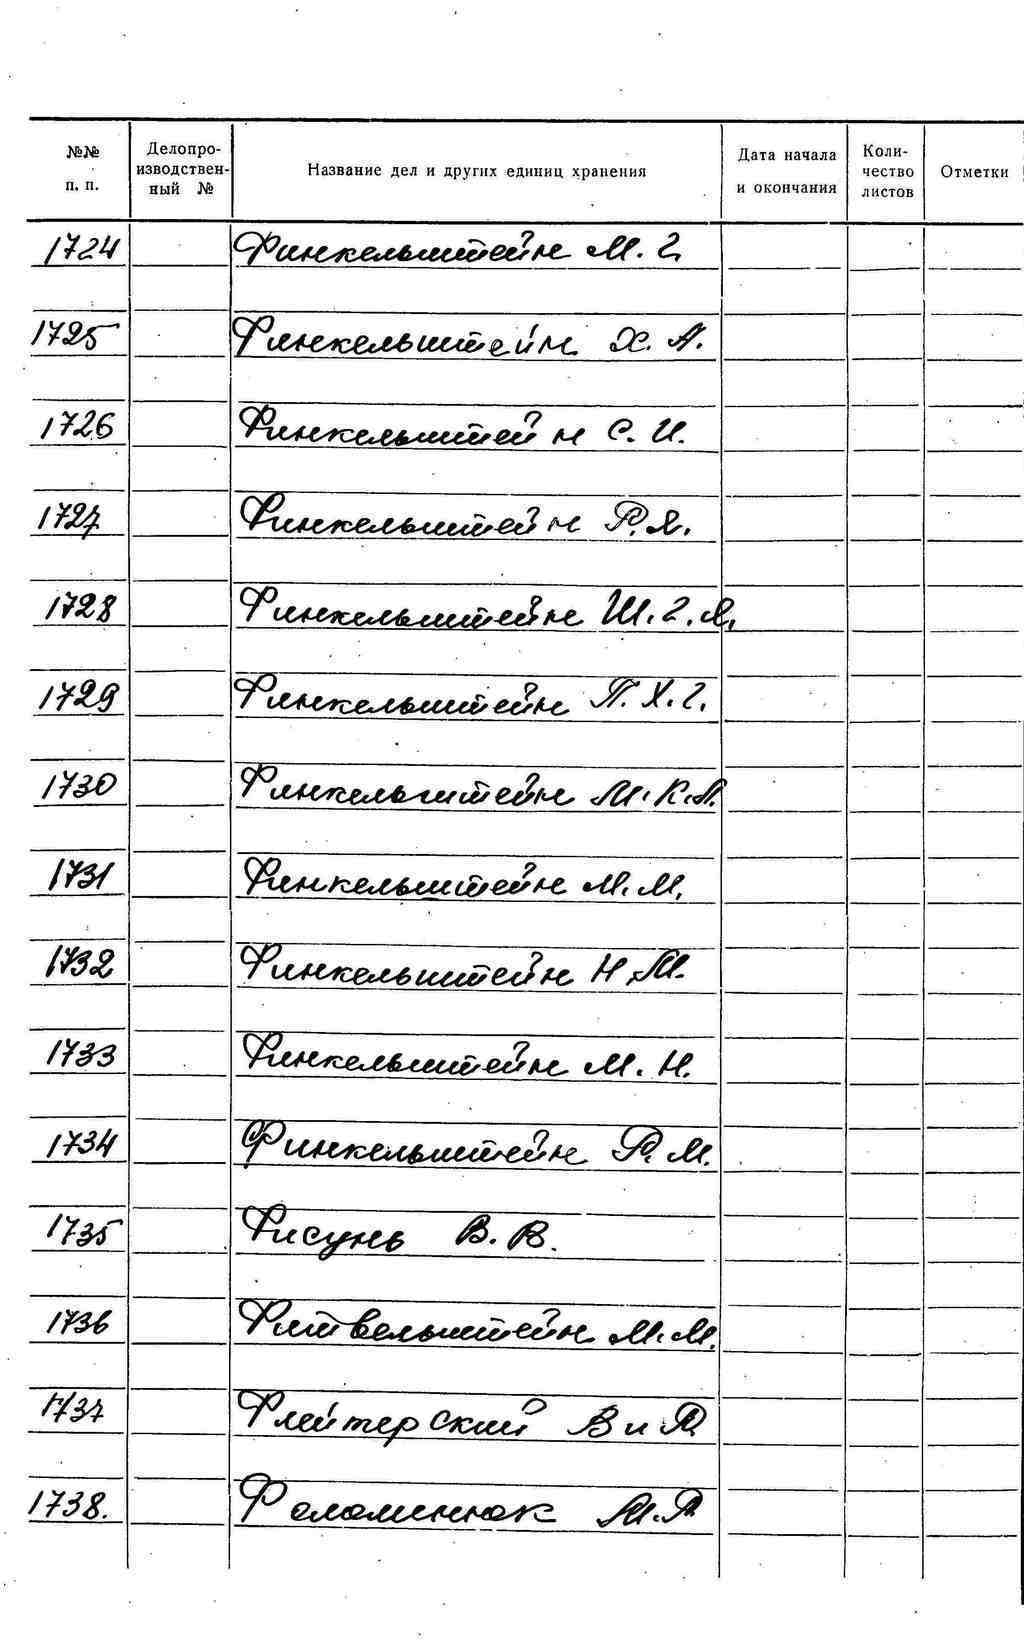 №№ п. п. Делопроизводственный № Название дел и других единиц хранения Дата начала и окончания Количество листов Отметки
1724 Финкельштейн М. Г.
1725 Финкельштейн Х. А.
1726 Финкельштейн С. И.
1727 Финкельштейн Р. Я.
1728 Финкельштейн Ш. Г. Я.
1729 Финкельштейн П. Х. Г.
1730 Финкельштейн М. К. Л.
1731 Финкельштейн М. М.
1732 Финкельштейн Н. М.
1733 Финкельштейн М. Н.
1734 Финкельштейн Р. М.
1735 Фисунь В. В.
1736 Фитвельштейн М. М.
1737 Флейтерский В и П
1738. Фоломинюк М. П